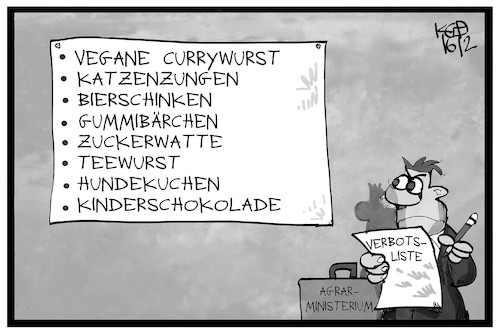 KOSP
16/2
• VEGANE CURRYWURST
• KATZENZUNGEN
• BIERSCHINKEN
• GUMMIBÄRCHEN
• ZUCKERWATTE
• TEEWURST
• HUNDEKUCHEN
• KINDERSCHOKOLADE
VERBOTS-
LISTE
AGRAR-
MINISTERIUM